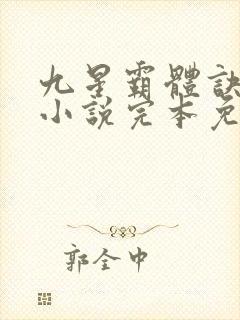 九星霸體訣
小說完本免
郭全中